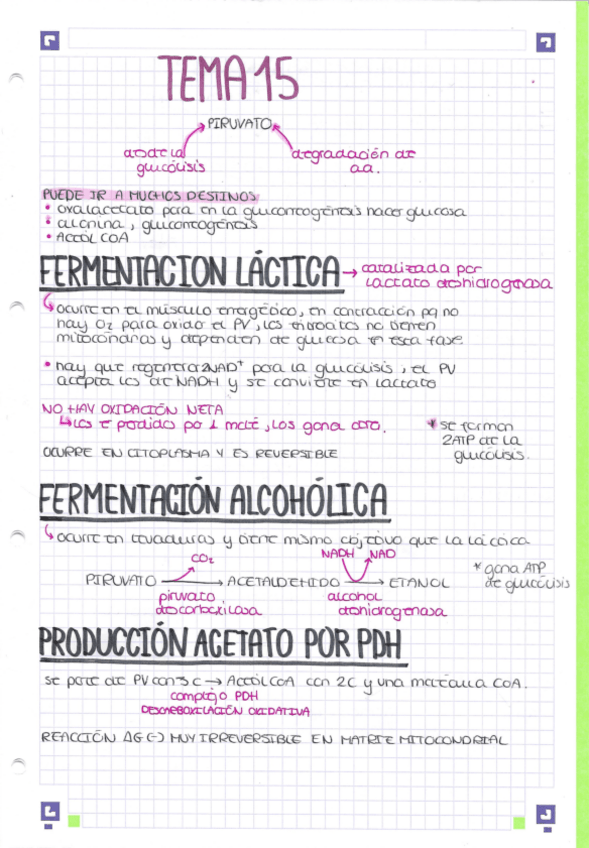 TEMA 15
PIRUVATO
desde la glucólisis
degradación de aa.
PUEDE IR A MUCHOS DESTINOS
• oxalacetato para en la gluconeogénesis hacer glucosa
• alanina, gluconeogénesis
• Acetil COA
FERMENTACION LÁCTICA → catalizada por
lactato deshidrogenasa
ocurre en el músculo energético, en contracción pq no
hay O2 para oxidar el PV, los eritrocitos no tienen
mitocondrias y dependen de glucosa en esta fase
• hay que regenerar 2NAD+ para la glucólisis, el PV
acepta los de NADH y se convierte en lactato
NO HAY OXIDACIÓN NETA
↳ los e- perdidos por 1 molé, los gana otro.
* se forman
2ATP de la
glucólisis.
OCURRE EN CITOPLASMA Y ES REVERSIBLE
FERMENTACIÓN ALCOHÓLICA
ocurre en levaduras y tiene mismo objetivo que la láctica
CO2
NADH NAD
PIRUVATO → ACETALDEHIDO → ETANOL
* gana ATP
de glucólisis
piruvato
descarboxilasa
alcohol
deshidrogenasa
PRODUCCIÓN ACETATO POR PDH
se parte de PV con 3C → Acetil CoA con 2C y una molécula COA.
complejo PDH
DESCARBOXILACIÓN OXIDATIVA
REACCIÓN ΔG (-) MUY IRREVERSIBLE EN MATRIZ MITOCONDRIAL